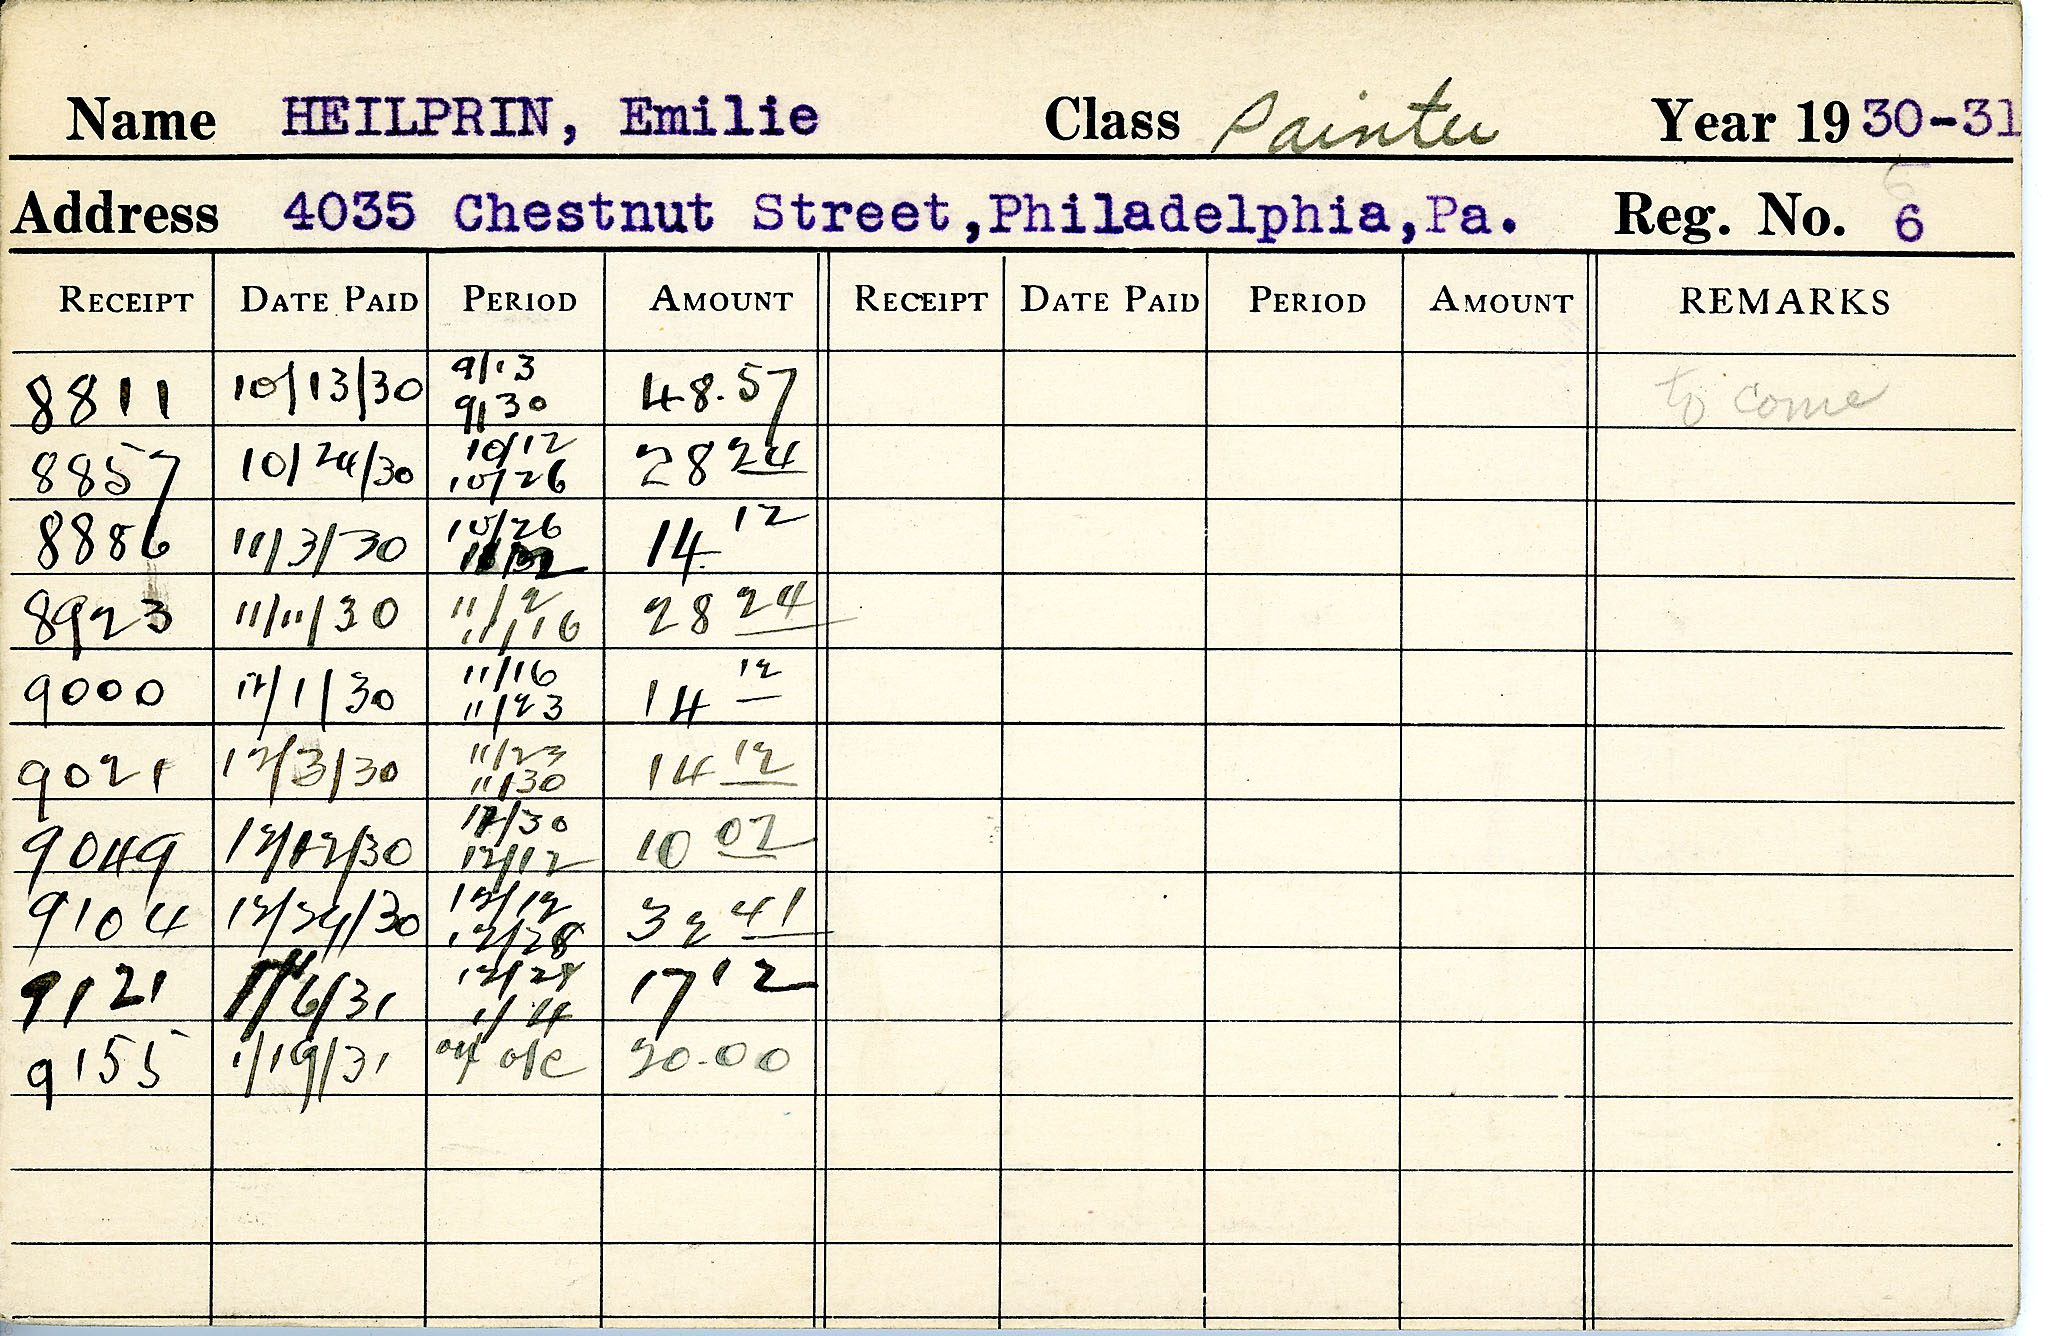 Name HEILPRIN, Emilie Class Painter Year 1930-31
Address 4035 Chestnut Street,Philadelphia,Pa. Reg. No. 6
RECEIPT DATE PAID PERIOD AMOUNT RECEIPT DATE PAID PERIOD AMOUNT REMARKS
8811 10/13/30 9/13 9/30 48.57 to come
8857 10/24/30 10/12 10/26 28 24
8886 11/3/30 10/26 14 12
8923 11/11/30 11/2 11/16 28 24
9000 12/1/30 11/16 11/23 14 12
9021 12/3/30 11/23 11/30 14 12
9049 12/12/30 12/12 10 07
9104 12/24/30 12/12 12/28 32 41
9121 1/6/31 12/28 1/4 17 12
9155 1/19/31 o/c 20.00